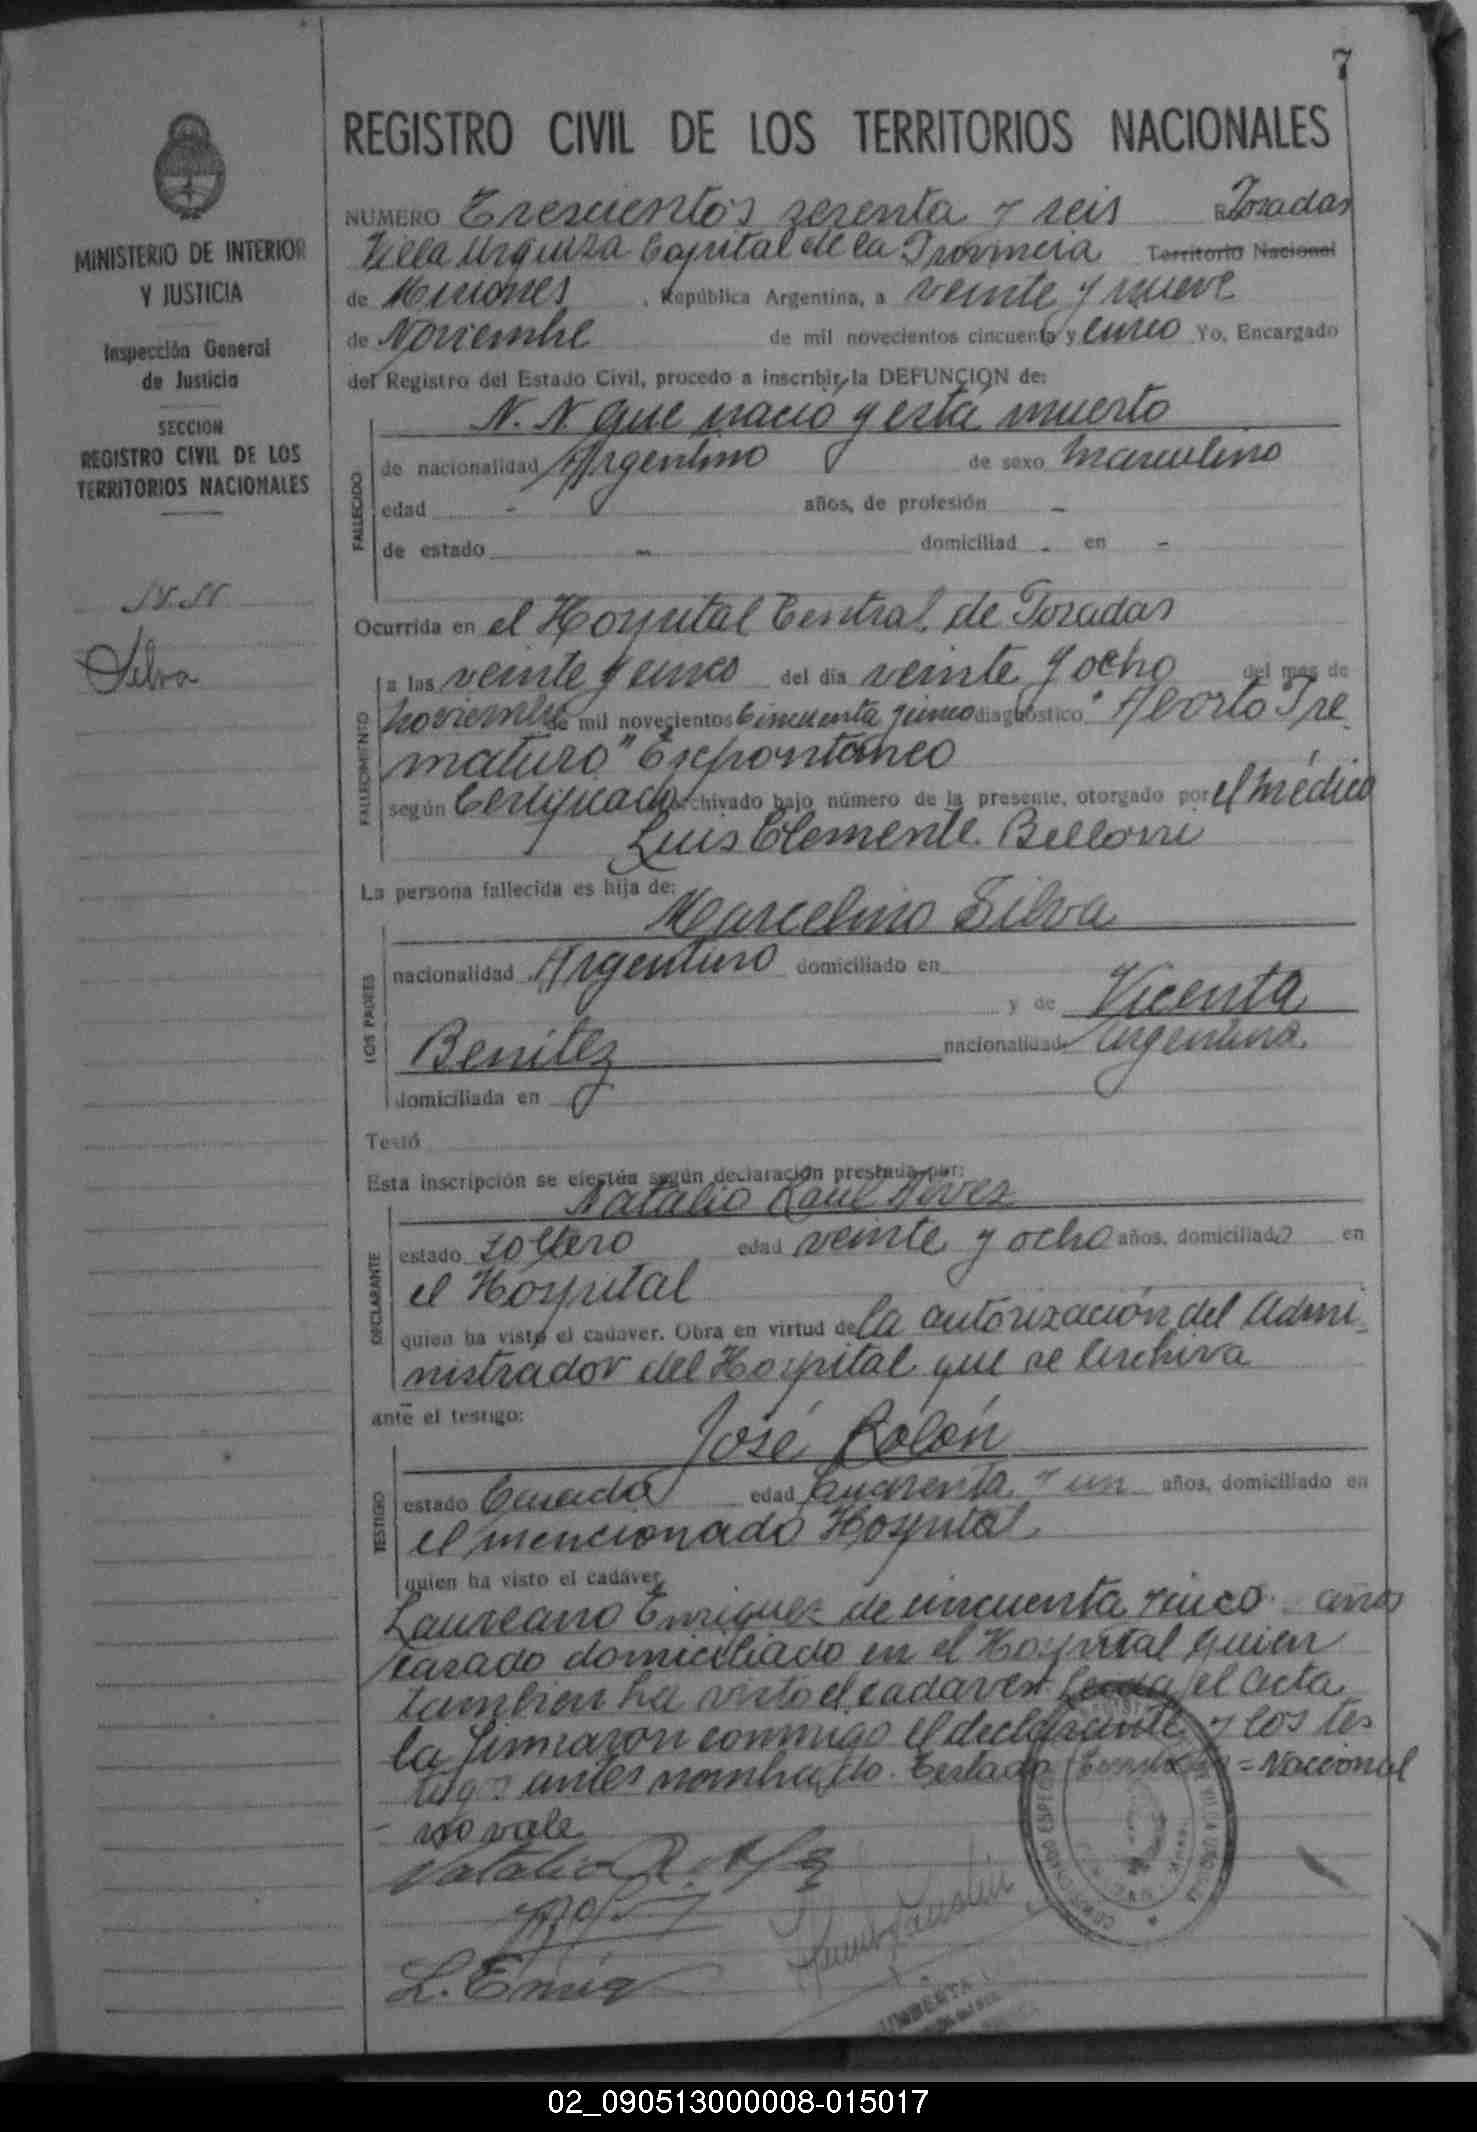 7
REGISTRO CIVIL DE LOS TERRITORIOS NACIONALES
MINISTERIO DE INTERIOR
Y JUSTICIA
Inspección General
de Justicia
SECCION
REGISTRO CIVIL DE LOS
TERRITORIOS NACIONALES
N.N.
Silva
NUMERO Trescientos sesenta y seis Posadas
Villa Urquiza Capital de la Provincia Territorio Nacional
de Misiones, República Argentina, a veinte y nueve
de Noviembre de mil novecientos cincuenta y cinco Yo, Encargado
del Registro del Estado Civil, procedo a inscribir la DEFUNCION de:
N. N que nació y está muerto
FALLECIDO
de nacionalidad Argentino de sexo masculino
edad - años, de profesión -
de estado - domiciliad - en -
Ocurrida en el Hospital Central de Posadas
FALLECIMIENTO
a las veinte y cinco del día veinte y ocho del mes de
noviembre de mil novecientos cincuenta y cinco diagnóstico "Aborto Pre
maturo" Expontaneo
según Certificado archivado bajo número de la presente, otorgado por el médico
Luis Clemente
La persona fallecida es hija de:
Marcelino Silva
LOS PADRES
nacionalidad Argentino domiciliado en
y de Vicenta
Benitez nacionalidad argentina
domiciliada en
Testó
Esta inscripción se efectúa según declaración prestada por:
Natalio Raul
DECLARANTE
estado soltero edad veinte y ocho años, domiciliado en
el Hospital
quien ha visto el cadaver. Obra en virtud de la autorización del Admi
nistrador del Hospital que se archiva
ante el testigo:
José Rolón
TESTIGO
estado Casado edad cuarenta y un años, domiciliado en
el mencionado Hospital
quien ha visto el cadaver.
Laureano Enriquez de cincuenta y cinco años
casado domiciliado en el Hospital quien
tambien ha visto el cadaver Leida el acta
la firmaron conmigo el declarante y los tes
tigos antes nombrado. Testado Territorio = Nacional
- no vale
L. Enriq
02_090513000008-015017